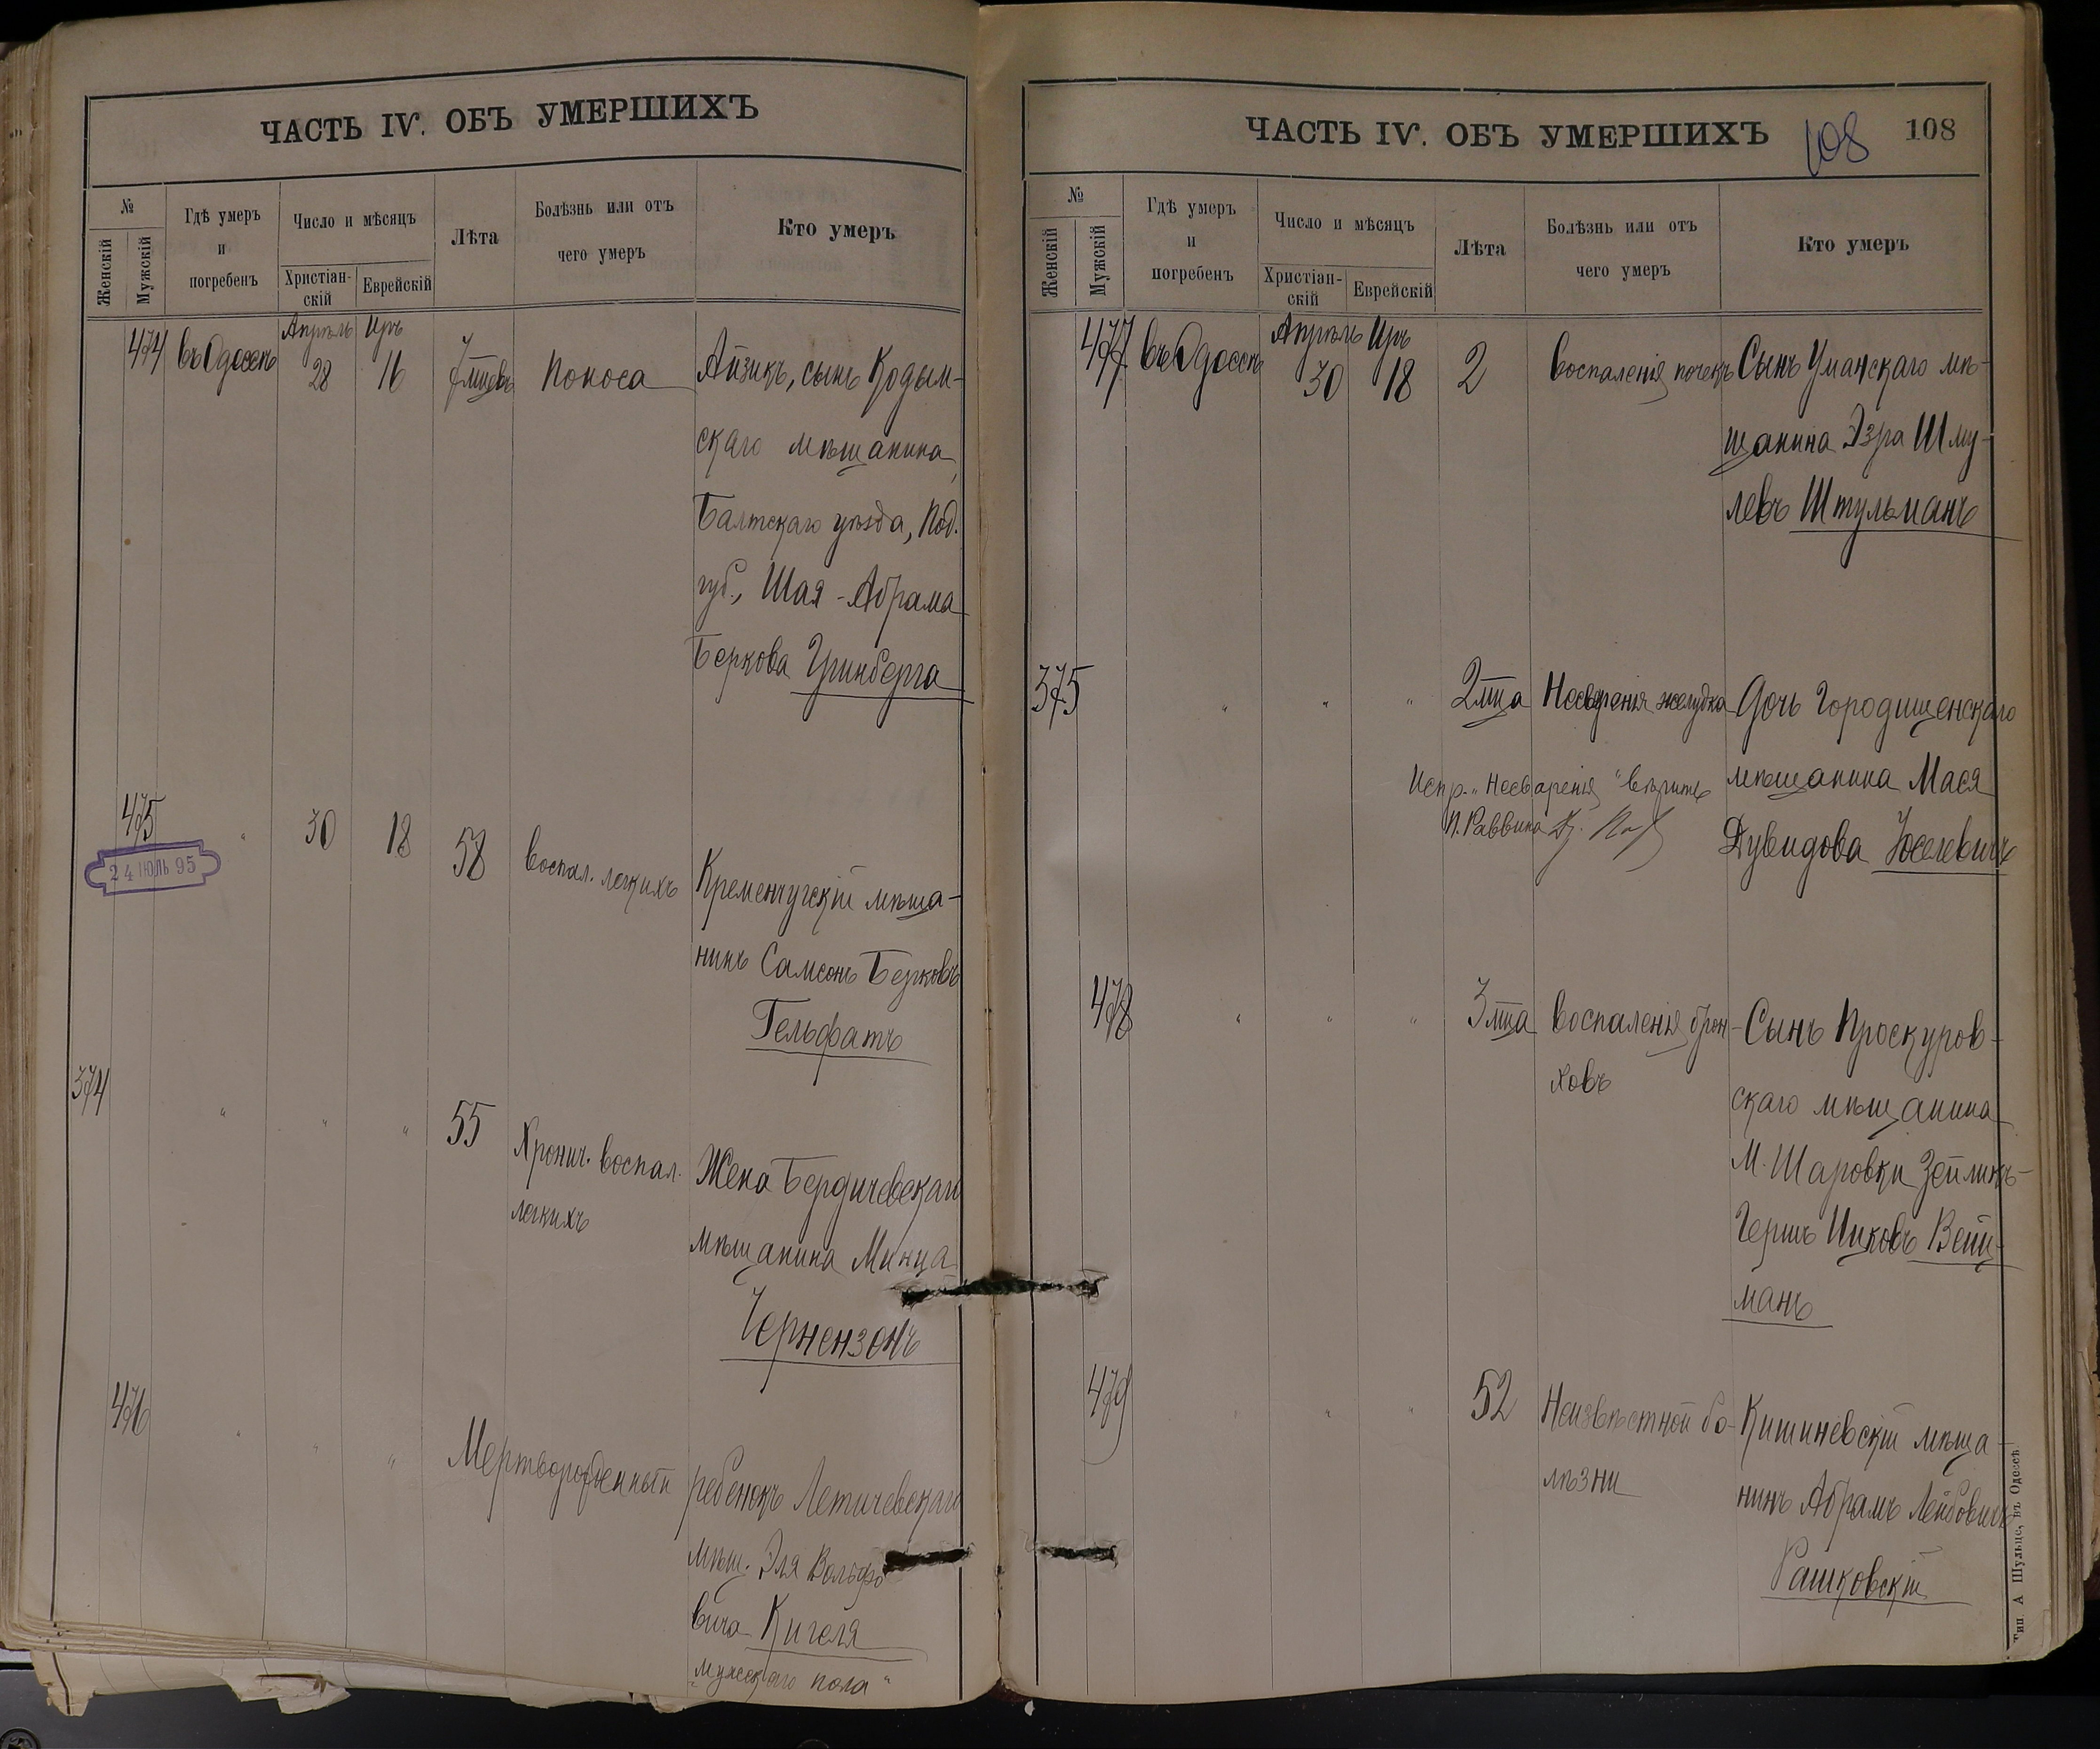 ЧАСТЬ IV. ОБЪ УМЕРШИХЪ
№
Женскій
Мужскій
Гдѣ умеръ
и
погребенъ
Число и мѣсяцъ
Христіан-
скій
Еврейскій
Лѣта
Болѣзнь или отъ
чего умеръ
Кто умеръ
474 въ Одессѣ Апрѣль 28 Иръ 16 7 мцевъ Поноса Айзикъ, сынъ Кодым-
скаго мѣщанина,
Балтскаго уѣзда, Под.
губ., Шая-Абрама
Беркова Гринберга
475 " 30 18 58 воспал. легкихъ Кременчугскій мѣща-
24 ІЮЛЬ 95
нинъ Самсонъ Берковъ
Гельфатъ
374 " " " 55 Хронич. воспал. Жена Бердичевскаго
легкихъ
мѣщанина Минца
Чернензонъ
476 " " " Мертворожденный ребенокъ Летичевскаго
мѣщ. Эля Вольфо
вича Кигеля
"мужскаго пола"
ЧАСТЬ IV. ОБЪ УМЕРШИХЪ 108 108
№
Женскій
Мужскій
Гдѣ умеръ
и
погребенъ
Число и мѣсяцъ
Христіан-
скій
Еврейскій
Лѣта
Болѣзнь или отъ
чего умеръ
Кто умеръ
477 въ Одессѣ Апрѣль 30 Иръ 18 2 воспаленія почекъ Сынъ Уманскаго мѣ-
щанина Эзра Шму-
левъ Штульманъ
375 " " " 2 мца Несваренія желудка Дочь Городищенскаго
Испр. "Несваренія" вѣрить мѣщанина Мася
П. Раввина Дувидова Юселевичъ
478 " " " 3 мца воспаленія брон- Сынъ Проскуров-
ховъ
скаго мѣщанина
М. Шаровки Зейликъ-
Гершъ Ицковъ Вейц-
манъ
479 " " " 52 Неизвѣстной бо- Кишиневскій мѣща-
лѣзни
нинъ Абрамъ Лейбовичъ
Рашковскій
Тип. А Шульце, въ Одессѣ